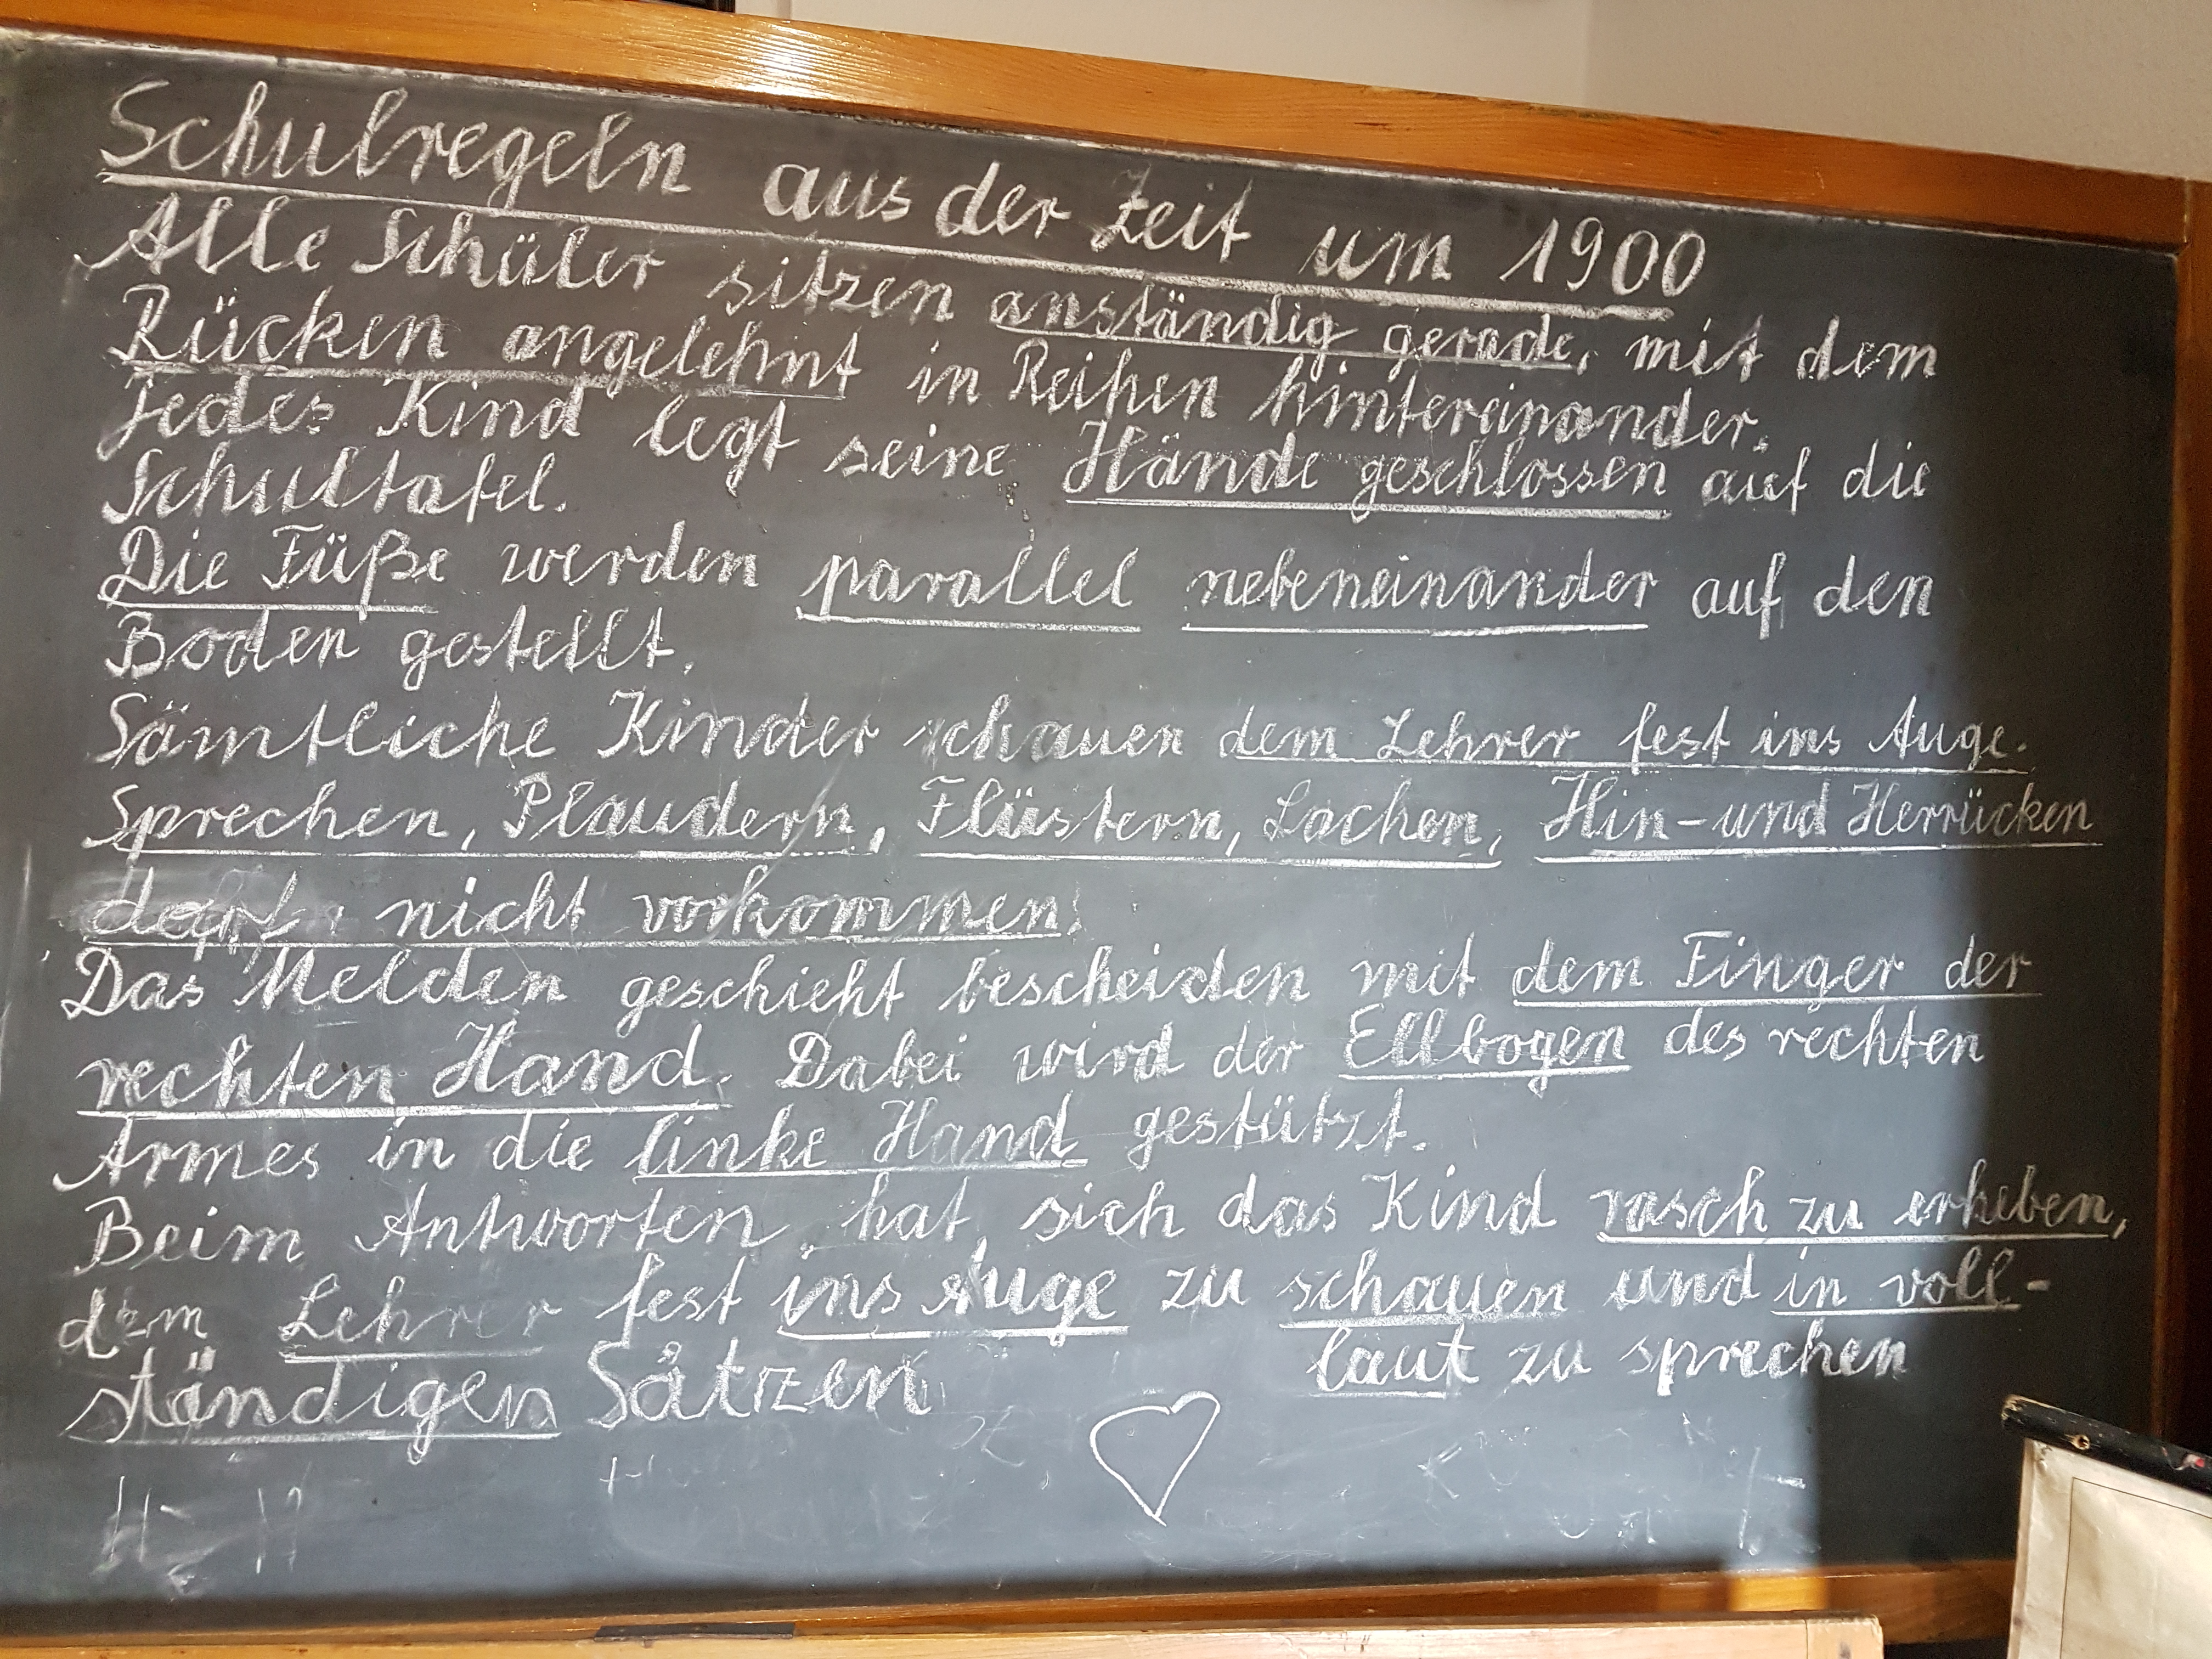 Schulregeln aus der Zeit um 1900
Alle Schüler sitzen anständig gerade, mit dem
Rücken angelehnt in Reihen hintereinander.
Jedes Kind legt seine Hände geschlossen auf die
Schultafel.
Die Füße werden parallel nebeneinander auf den
Boden gestellt.
Sämtliche Kinder schauen dem Lehrer fest ins Auge.
Sprechen, Plaudern, Flüstern, Lachen, Hin-und Herrücken
darf nicht vorkommen.
Das Melden geschieht bescheiden mit dem Finger der
rechten Hand. Dabei wird der Ellbogen des rechten
Armes in die linke Hand gestützt.
Beim Antworten hat sich das Kind rasch zu erheben,
dem Lehrer fest ins Auge zu schauen und in voll-
ständigen Sätzen laut zu sprechen